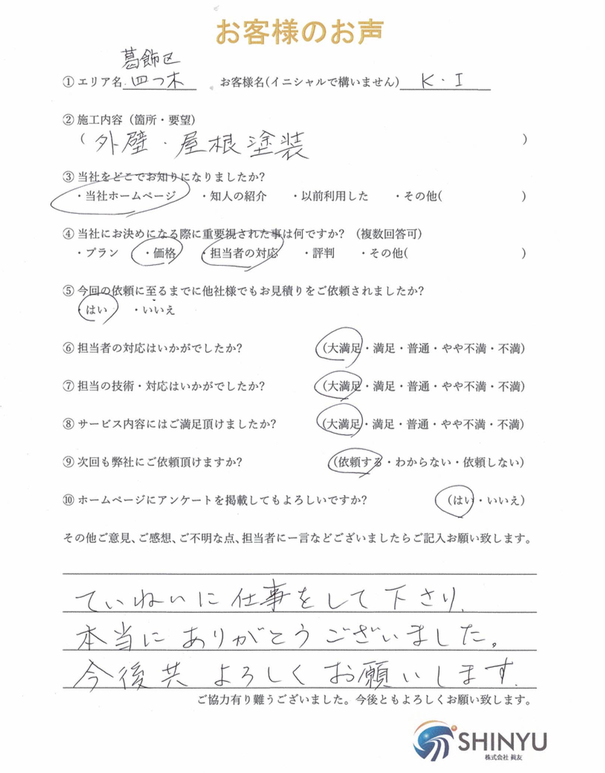 お客様のお声
葛飾区
①エリア名 四つ木 お客様名(イニシャルで構いません) K・I
②施工内容(箇所・要望)
(外壁・屋根塗装)
③当社をどこでお知りになりましたか?
・当社ホームページ ・知人の紹介 ・以前利用した ・その他( )
④当社にお決めになる際に重要視された事は何ですか? (複数回答可)
・プラン ・価格 ・担当者の対応 ・評判 ・その他( )
⑤今回の依頼に至るまでに他社様でもお見積りをご依頼されましたか?
・はい ・いいえ
⑥担当者の対応はいかがでしたか? (大満足・満足・普通・やや不満・不満)
⑦担当の技術・対応はいかがでしたか? (大満足・満足・普通・やや不満・不満)
⑧サービス内容にはご満足頂けましたか? (大満足・満足・普通・やや不満・不満)
⑨次回も弊社にご依頼頂けますか? (依頼する・わからない・依頼しない)
⑩ホームページにアンケートを掲載してもよろしいですか? (はい・いいえ)
その他ご意見、ご感想、ご不明な点、担当者に一言などございましたらご記入お願い致します。
ていねいに仕事をして下さり、
本当にありがとうございました。
今後共よろしくお願いします。
ご協力有り難うございました。今後ともよろしくお願い致します。
SHINYU
株式会社 眞友